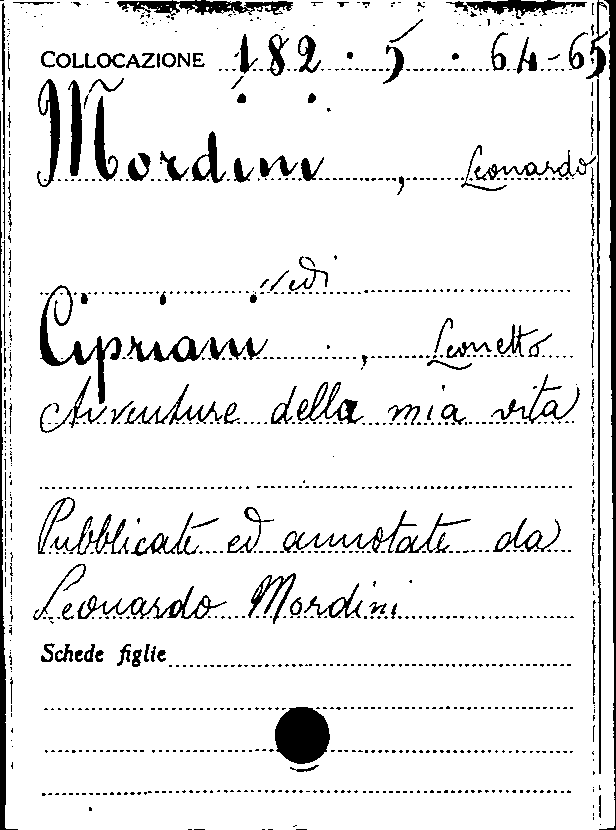 COLLOCAZIONE 182 · 5 · 64-65
Mordini, Leonardo
vedi
Cipriani, Leonetto
Avventure della mia vita
Pubblicate ed annotate da
Leonardo Mordini
Schede figlie